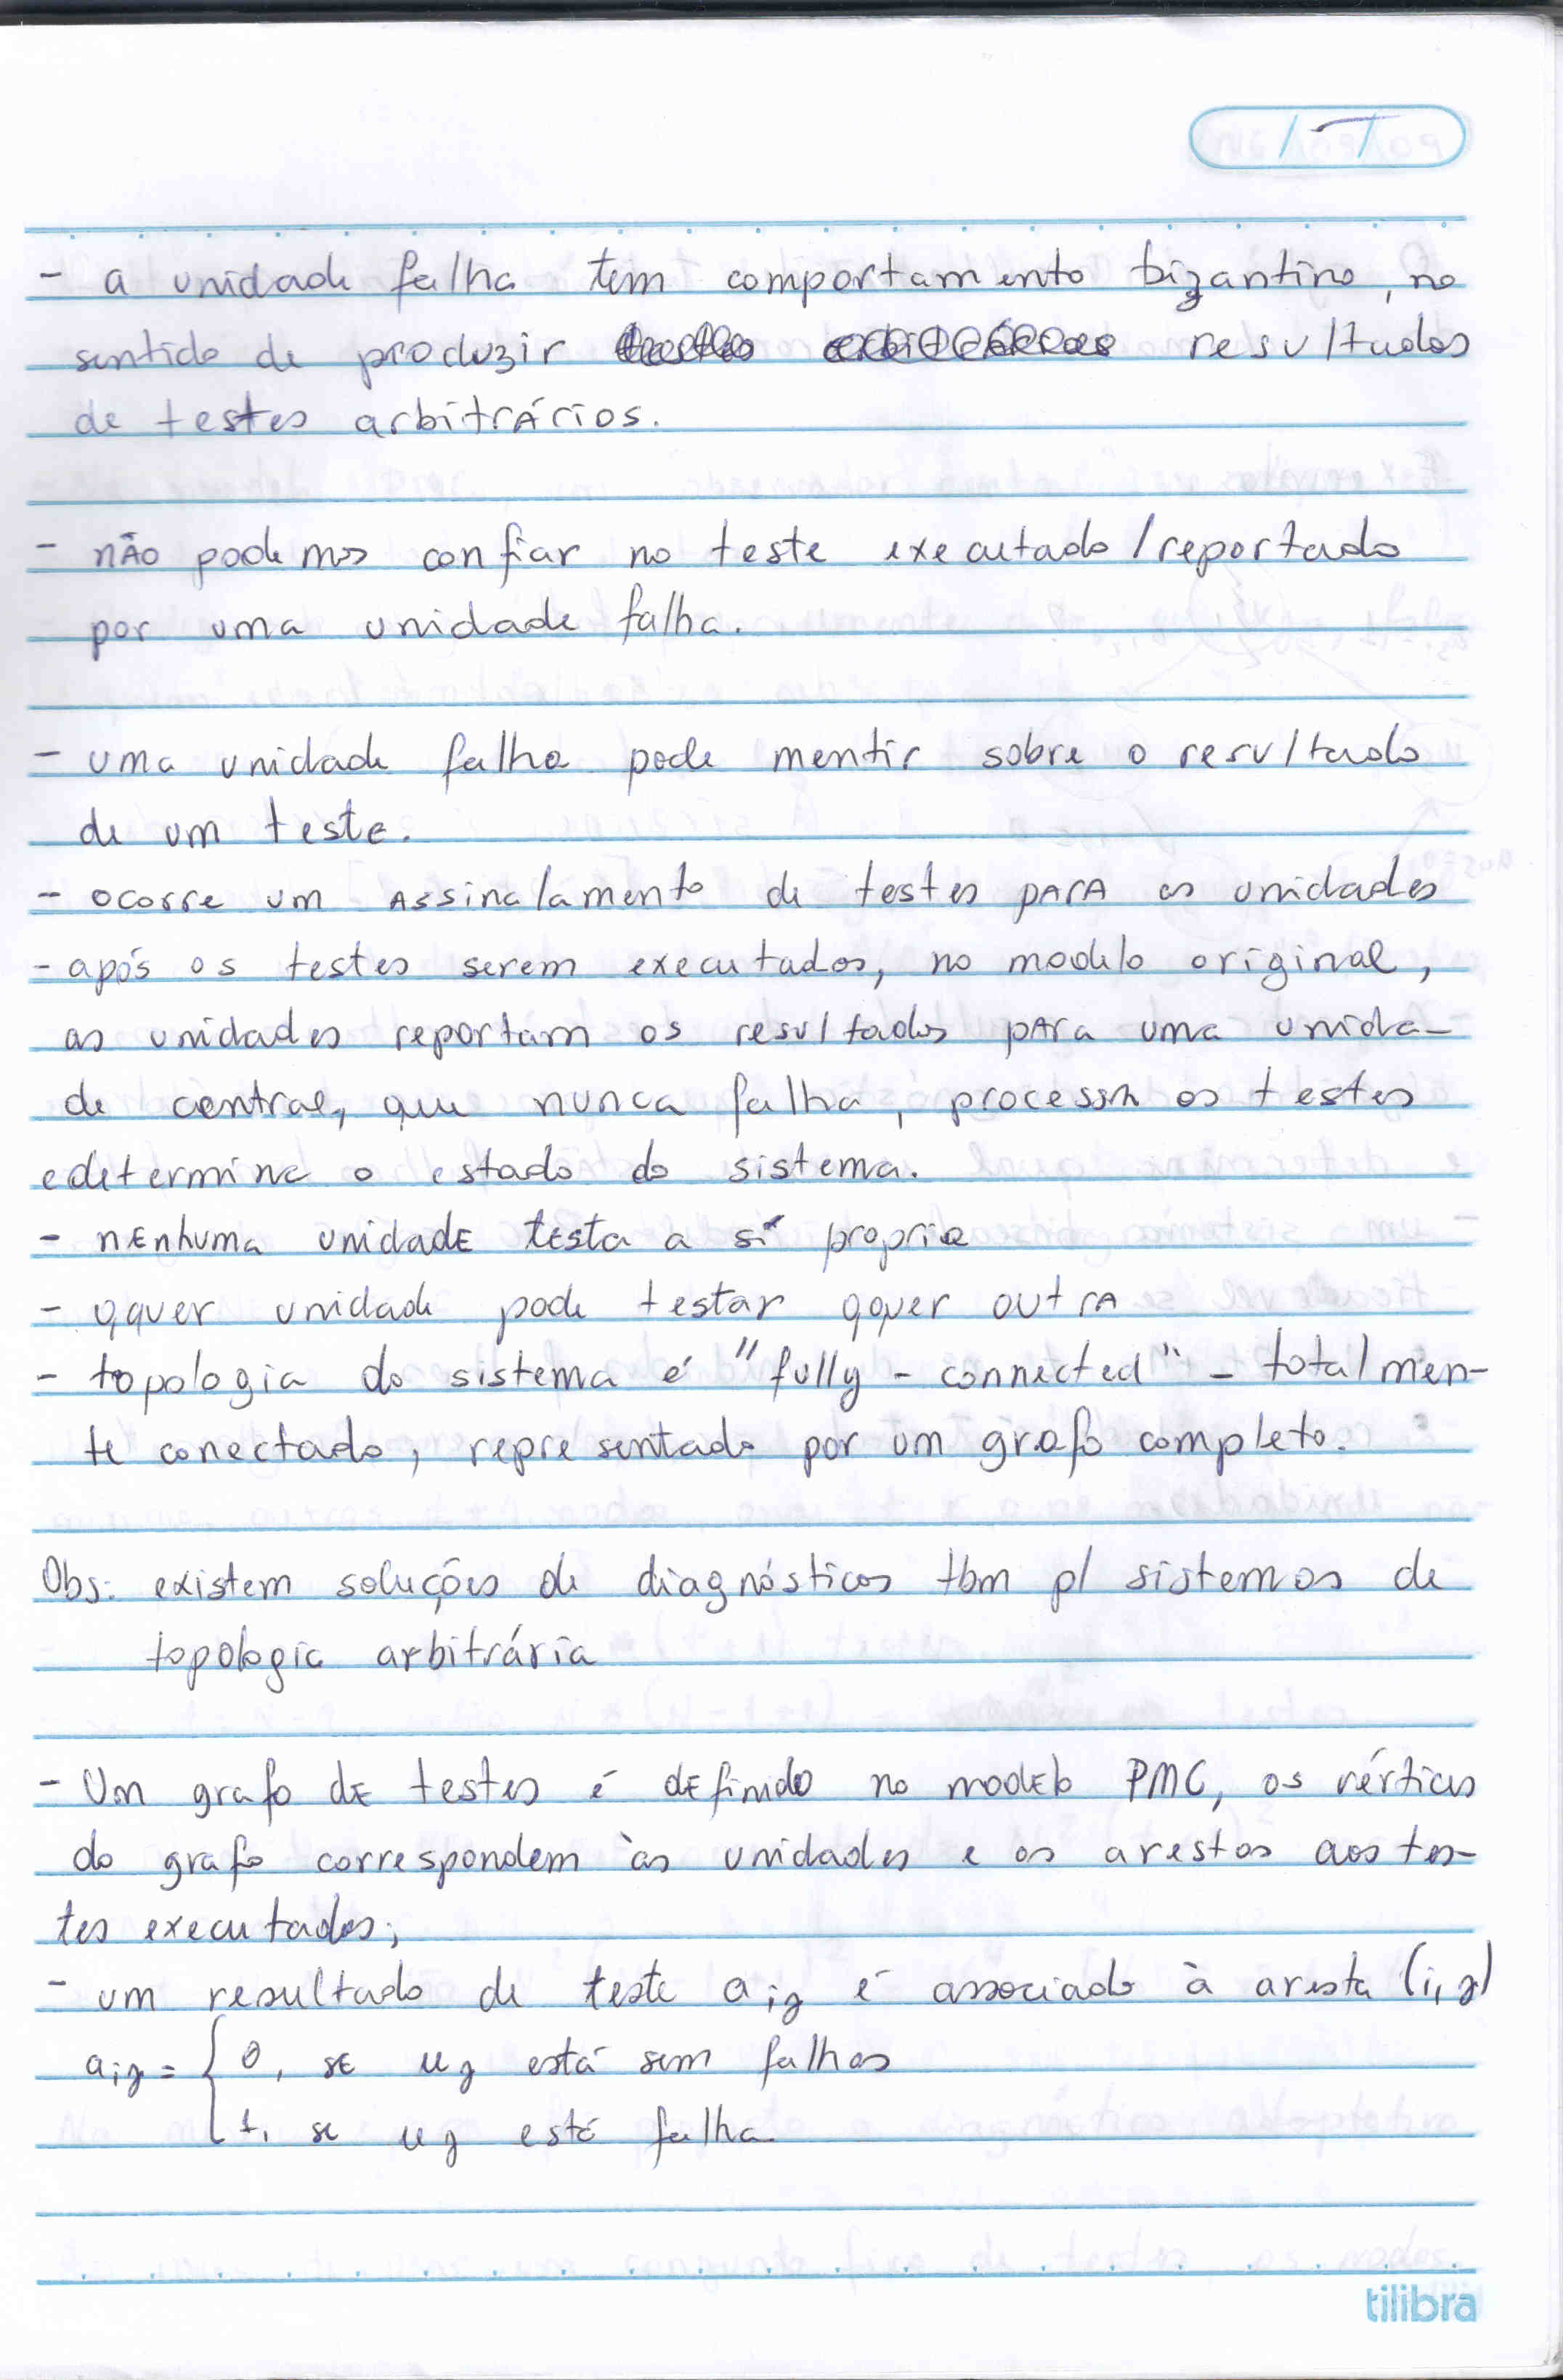 - a unidade falha tem comportamento bizantino, no
sentido de produzir resultados
de testes arbitrários.
- não podemos confiar no teste executado/reportado
por uma unidade falha.
- uma unidade falha pode mentir sobre o resultado
de um teste.
- ocorre um assinalamento de testes para as unidades
- após os testes serem executados, no modelo original,
as unidades reportam os resultados para uma unida-
de central, que nunca falha, processa os testes
e determina o estado do sistema.
- nenhuma unidade testa a si propria
- qquer unidade pode testar qquer outra
- topologia do sistema é "fully-connected" - totalmen-
te conectado, representado por um grafo completo.
Obs: existem soluções de diagnósticos tbm p/ sistemas de
topologia arbitrária
- Um grafo de testes é definido no modelo PMC, os vértices
do grafo correspondem às unidades e as arestas aos tes-
tes executados;
- um resultado de teste aij é associado à aresta (i,j)
aij = { 0, se uj está sem falhas
1, se uj está falha
tilibra